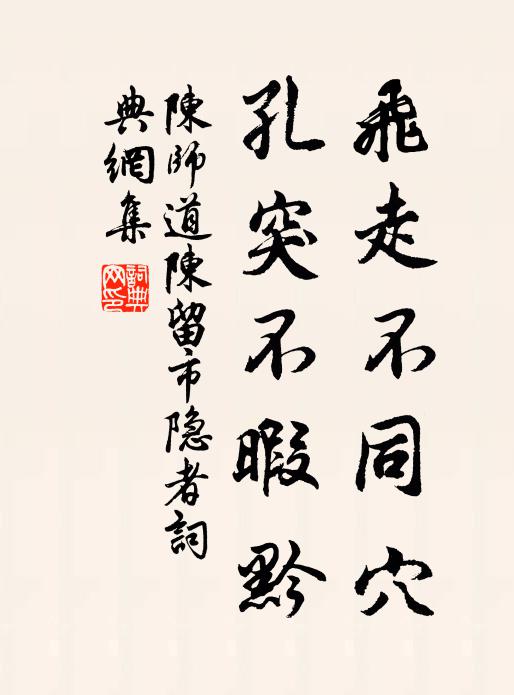 飛走不同穴
孔突不暇黔
陳師道陳留市隐者詞
典網集
詞典
网印